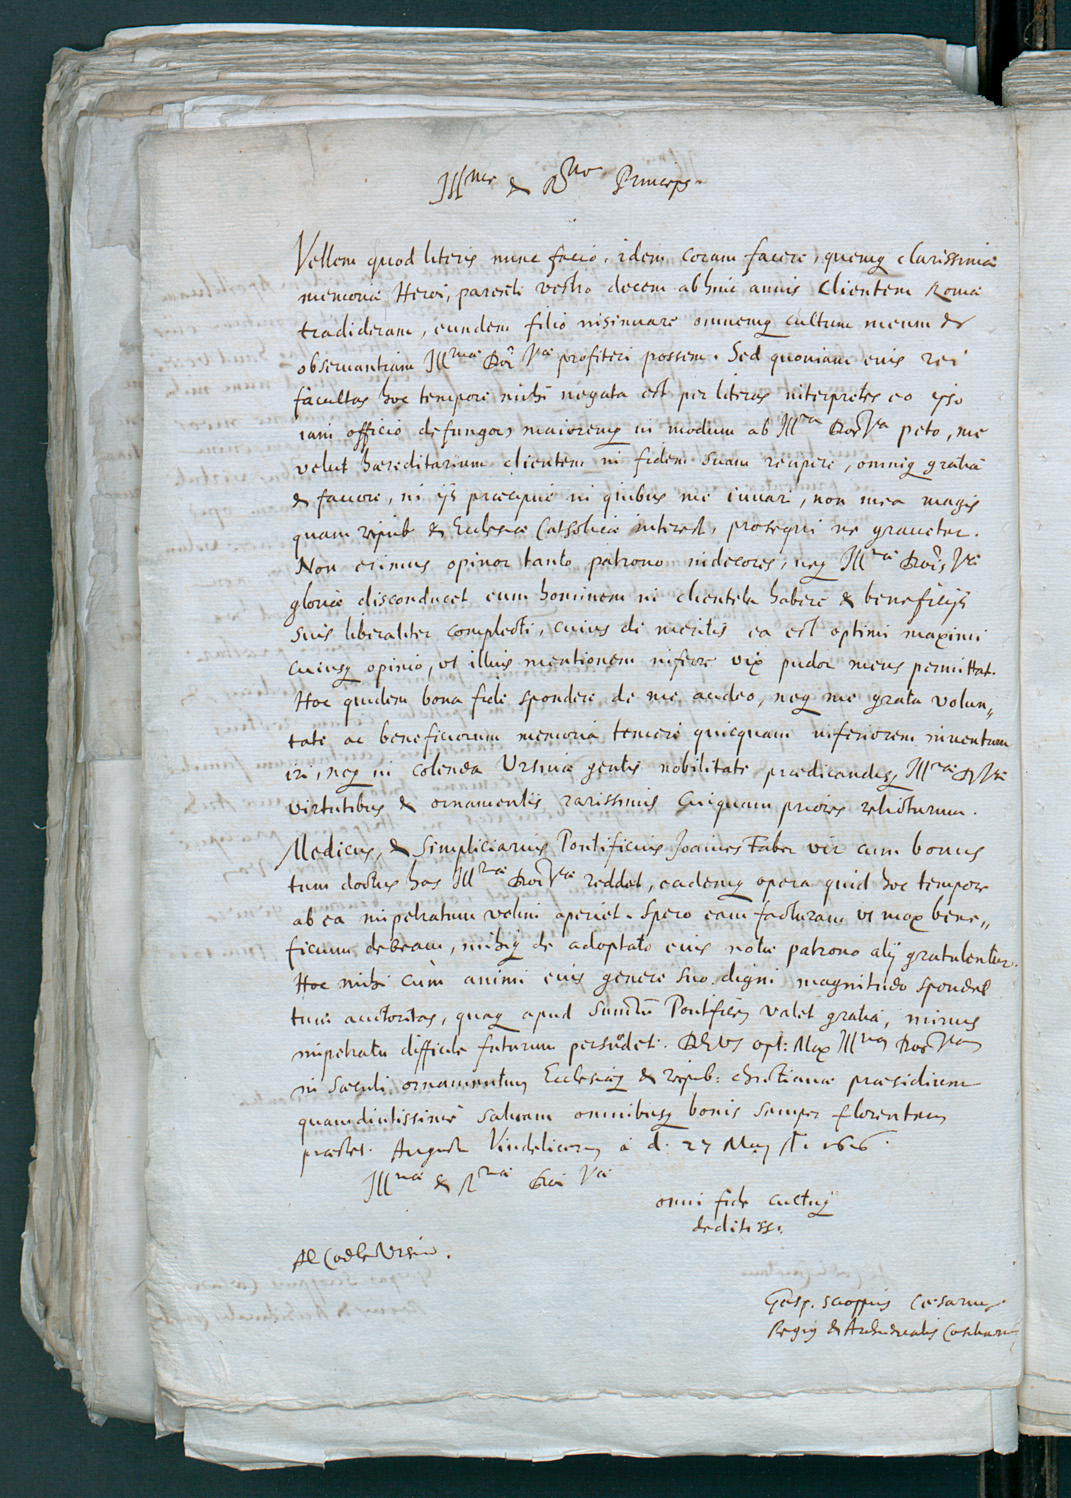 Illme & Rme Princeps.
Vellem quod literis nunc facio, idem coram facere, quemq clarissimæ
memoriæ Heroi, parenti vestro decem abhinc annis Clientem Romæ
tradideram, eundem filio insinuare omnemq cultum meum &
observantiam Illmæ Doi Væ profiteri possem. Sed quoniam eius rei
facultas hoc tempore mihi negata est per literas interpretes eo ipso
iam officio defungor, maioremq in modum ab Illma Doe Va peto, me
velut hæreditarium clientem in fidem suam recipere, omniq gratia
& favore, in ijs præcipue in quibus me iuvari, non mea magis
quam reipub & Ecclesiæ Catholicæ interest, prosequi ne gravetur.
Non erimus opinor tanto patrono indecores, neq Illmæ Dois Væ
gloriæ disconducet eum hominem in clientela habere & beneficijs
suis liberaliter complecti, cuius de meritis ea est optimi maximi
cuiusq opinio, ut illius mentionem inferre vix pudor meus permittat.
Hoc quidem bona fide spondere de me audeo, neq me grata volun„
tate ac beneficiorum memoria temere quicquam inferiorem inventum
iri, neq in colenda Ursinæ gentis nobilitate prædicandisq Illmæ D Væ
virtutibus & ornamentis rarissimis cuiquam priores relicturum.
Medicus, & Simpliciarius Pontificius Joannes Faber vir cum bonus
tum doctus has Illmæ Doi Væ reddet, eademq opera quid hoc tempore
ab ea impetratum velim aperiet. Spero eam facturam ut mox bene„
ficium debeam, mihiq de adoptato eius notæ patrono alij gratulentur.
Hoc mihi cùm animi eius genere suo digni magnitudo spondet
tum auctoritas, quaq apud Sanctm Pontificem valet gratia, minus
impetratu difficile futurum persuadet. DEVS opt: Max Illmam Doem Vam
in sæculi ornamentum Ecclesiæq & reipub: christianæ præsidium
quamdiutissimè salvam omnibusq bonis semper florentem
præstet. Augustæ Vindelicorum a d. 27 Maij 1616.
Illmæ & Rmæ Doi Væ
omni fide cultuq
deditiss.
Al Cardle Ursino.
Gasp. Scioppius Cæsareus
Regius & Archiducalis Consiliarius